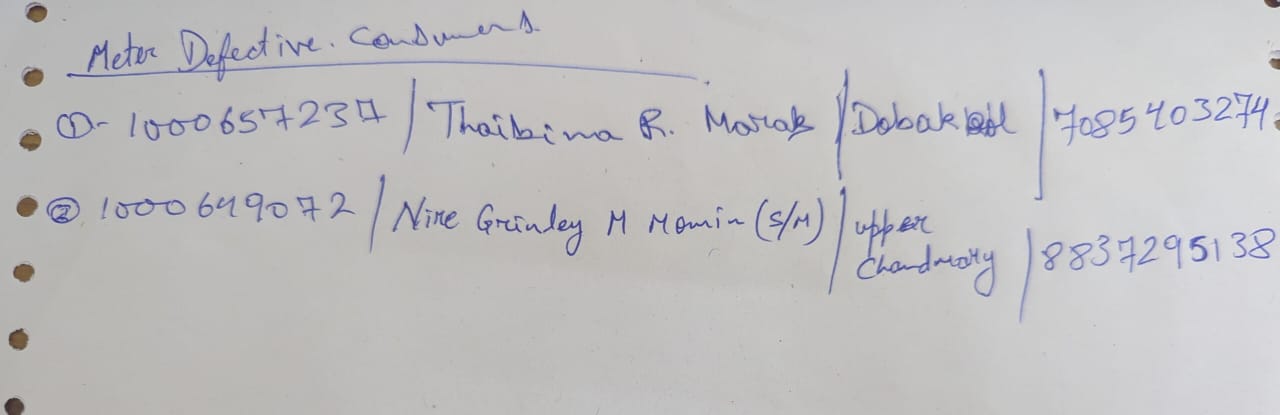 Meter Defective. Consumers
① - 1000657237 / Thaibina R. Marak / Dobakkol / 7085403274
② 1000649072 / Nire Grinley M Momin (S/M) / upper Chandmary / 8837295138